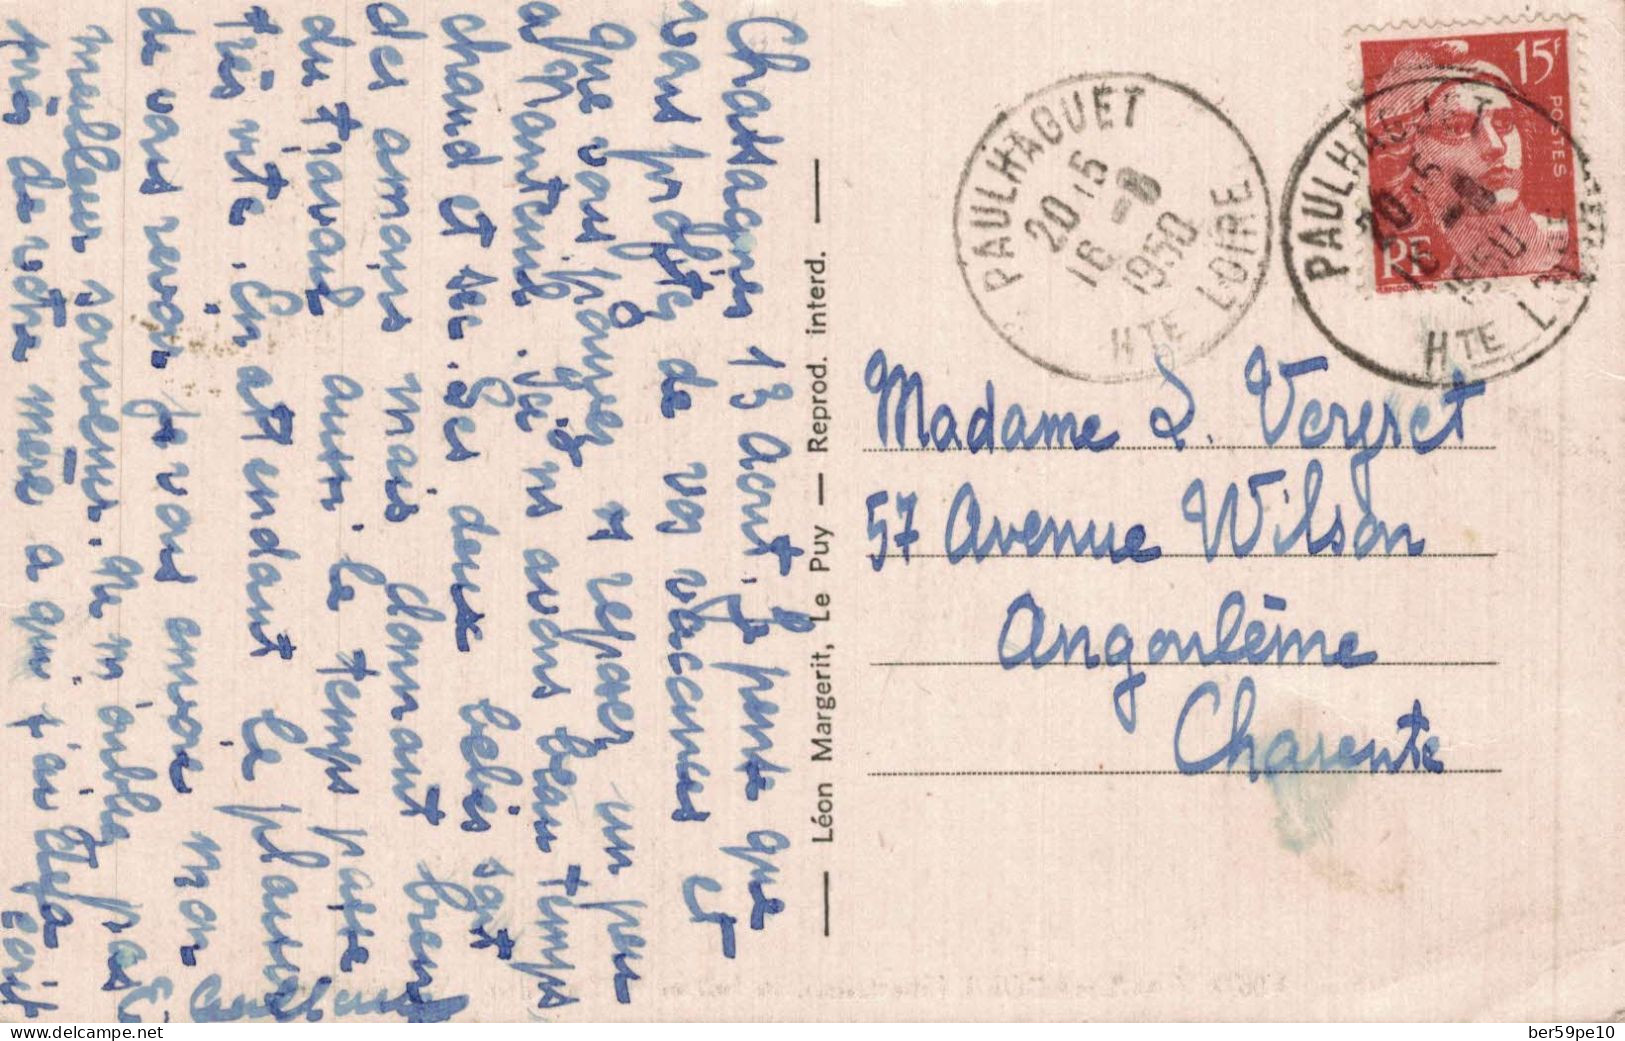 Chassagnes 13 Août. Je pense que
vous profitez de vos vacances et
que vous pouvez vs reposer un peu
à Nanteuil. Ici ns avons beau temps
chaud et sec. Les deux bébés sont
des amours mais donnant bien
du travail aussi le temps passe
très vite. En attendant le plaisir
de vous revoir je vous envoie mon
meilleur souvenir. Ne m'oubliez pas
près de votre mère à qui j'ai déjà écrit
— Léon Margerit, Le Puy — Reprod. interd. —
PAULHAGUET
20 15
16 -8
1950
HTE LOIRE
PAULHAGUET
20 15
16 -8
1950
HTE LOIRE
15F
POSTES
RF
Madame L. Vergset
57 Avenue Wilson
Angoulême
Charente
ber59pe10